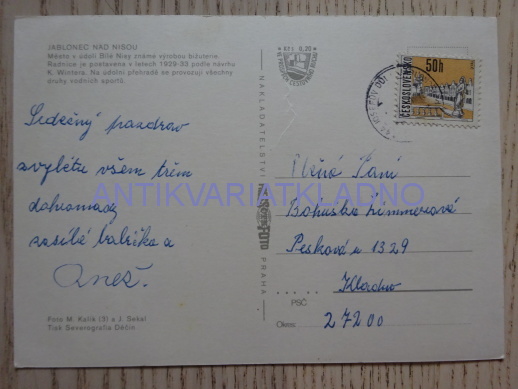 JABLONEC NAD NISOU
Město v údolí Bílé Nisy známé výrobou bižuterie.
Radnice je postavena v letech 1929-33 podle návrhu
K. Wintera. Na údolní přehradě se provozují všechny
druhy vodních sportů.
Srdečný pozdrav
z výletu všem třem
dohromady
zasílá babička a
Foto M. Kalík (3) a J. Sekal
Tisk Severografia Děčín
NAKLADATELSTVÍ
PRAHA
50h
ČESKOSLOVENSKO
Paní
Bohuška
Pesková 1329
Kladno
PSČ
Okres:
27200
ANTIKVARIATKLADNO